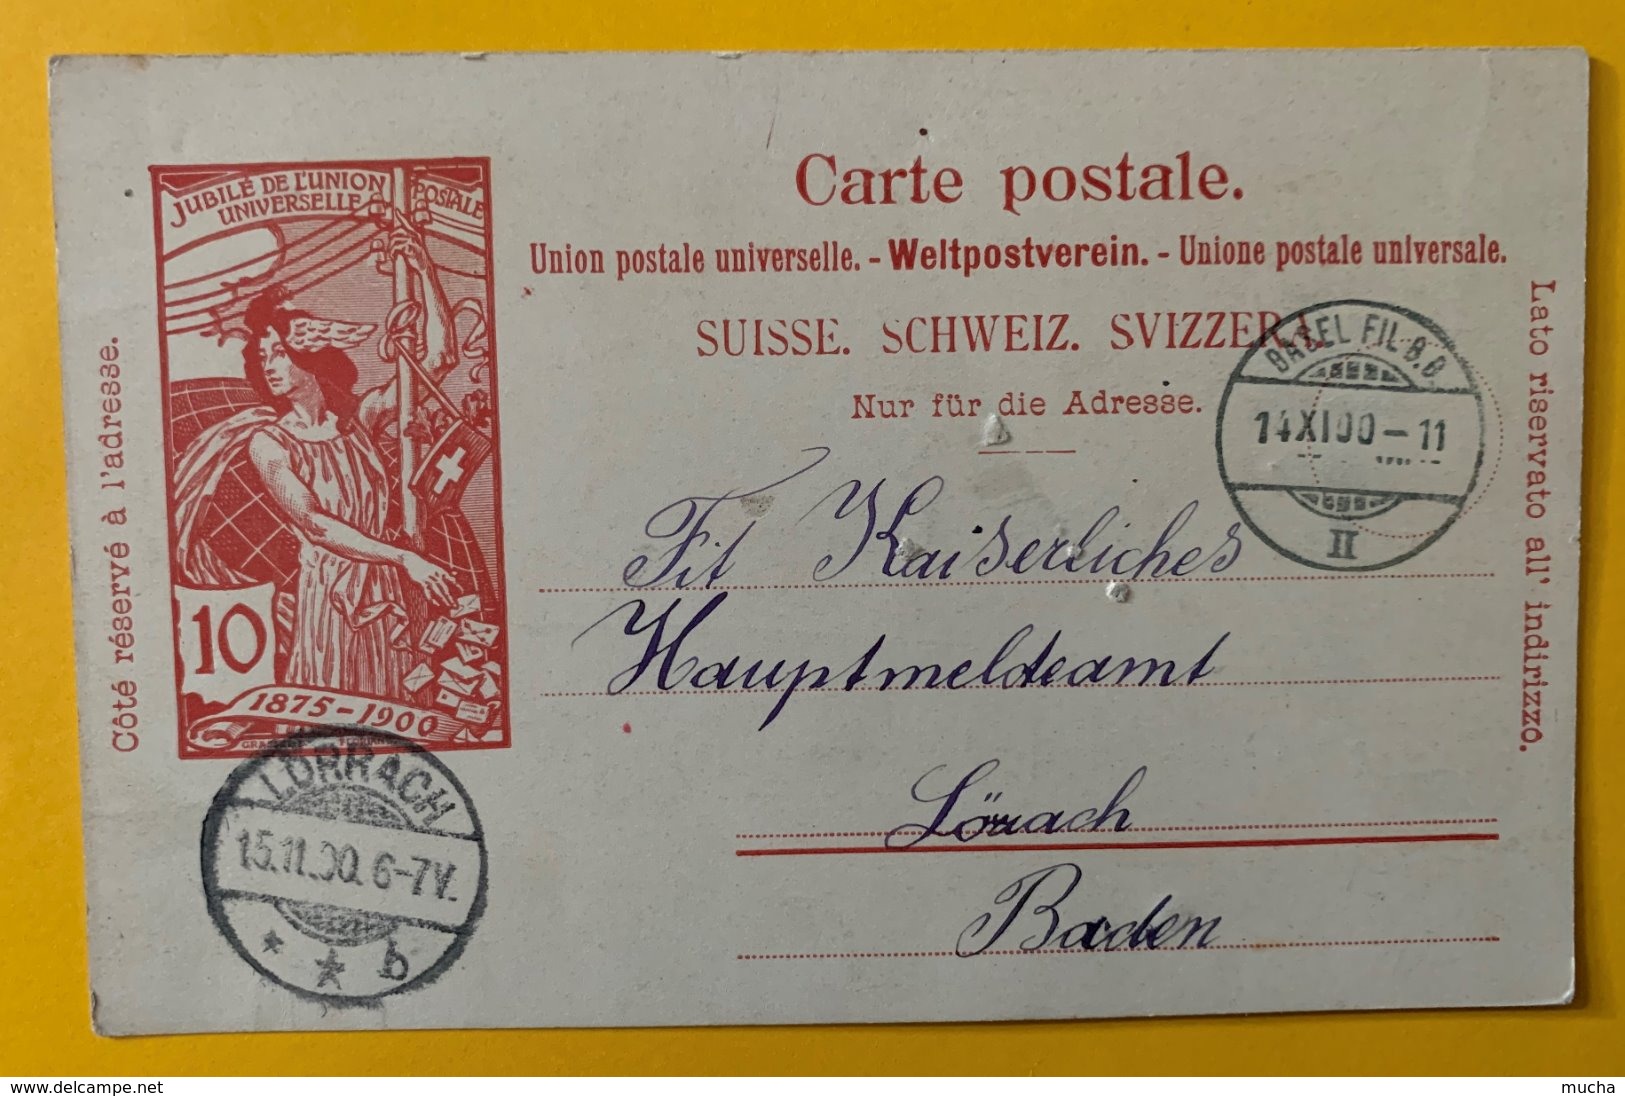 JUBILÉ DE L'UNION POSTALE
UNIVERSELLE
10
1875-1900
Côté réservé à l'adresse.
Carte postale.
Union postale universelle. - Weltpostverein. - Unione postale universale.
SUISSE. SCHWEIZ. SVIZZERA.
Nur für die Adresse.
Lato riservato all' indirizzo.
BASEL FIL B.B.
14 XI 00 - 11
II
Tit Kaiserliches
Hauptmeldeamt
Lörrach
Baden
LÖRRACH
15.11.00. 6-7V.
* * b
www.delcampe.net
mucha